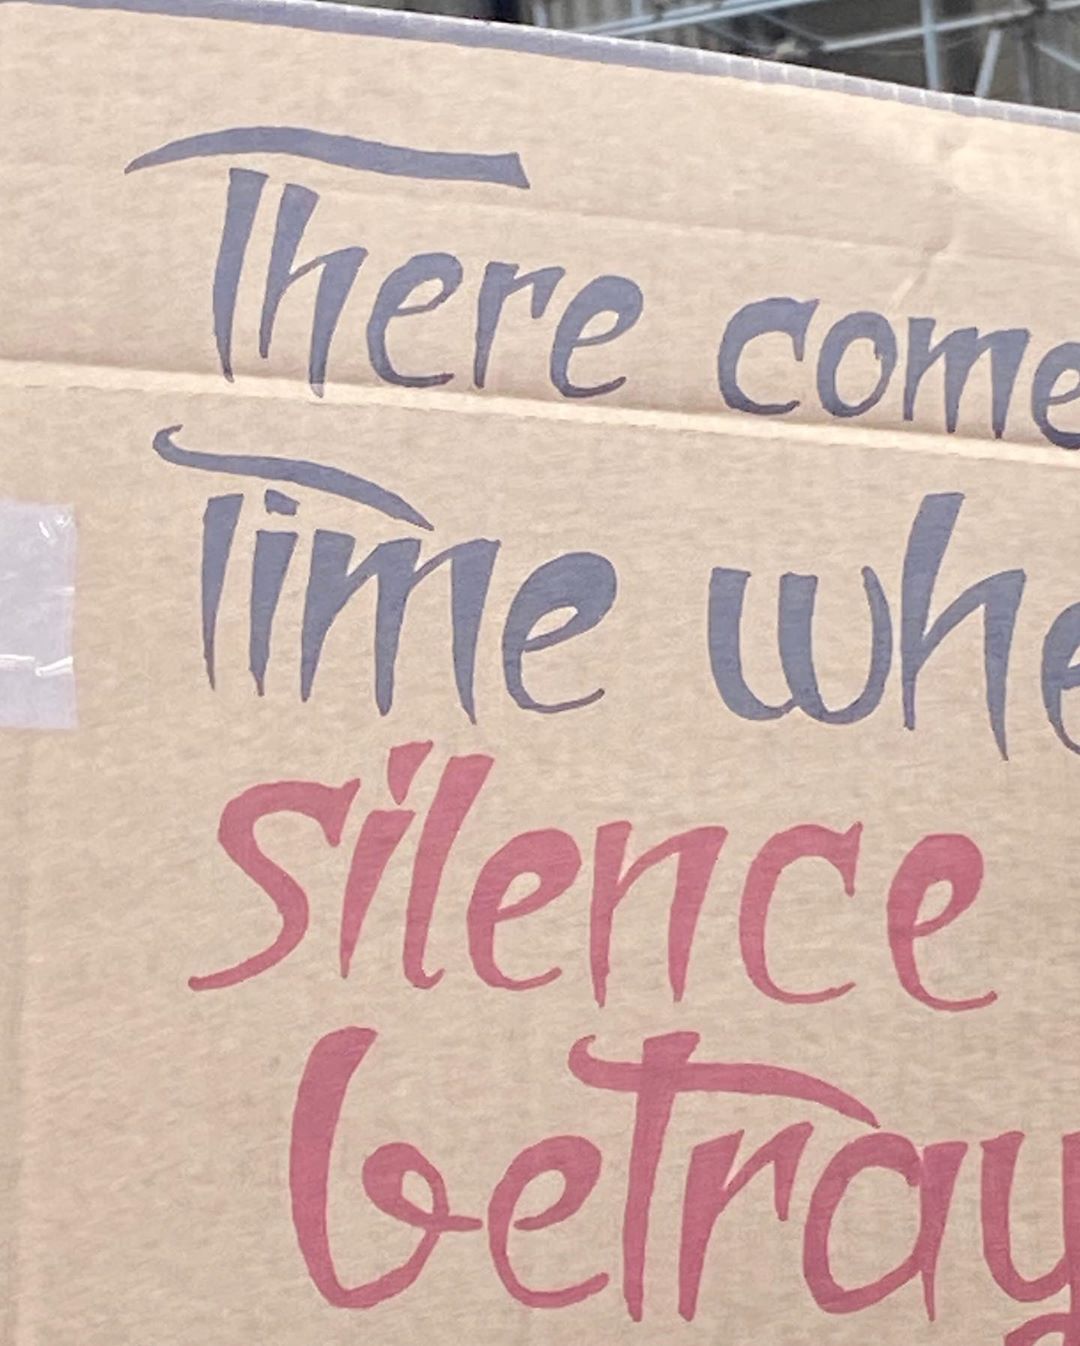 There come
Time whe
silence
betray